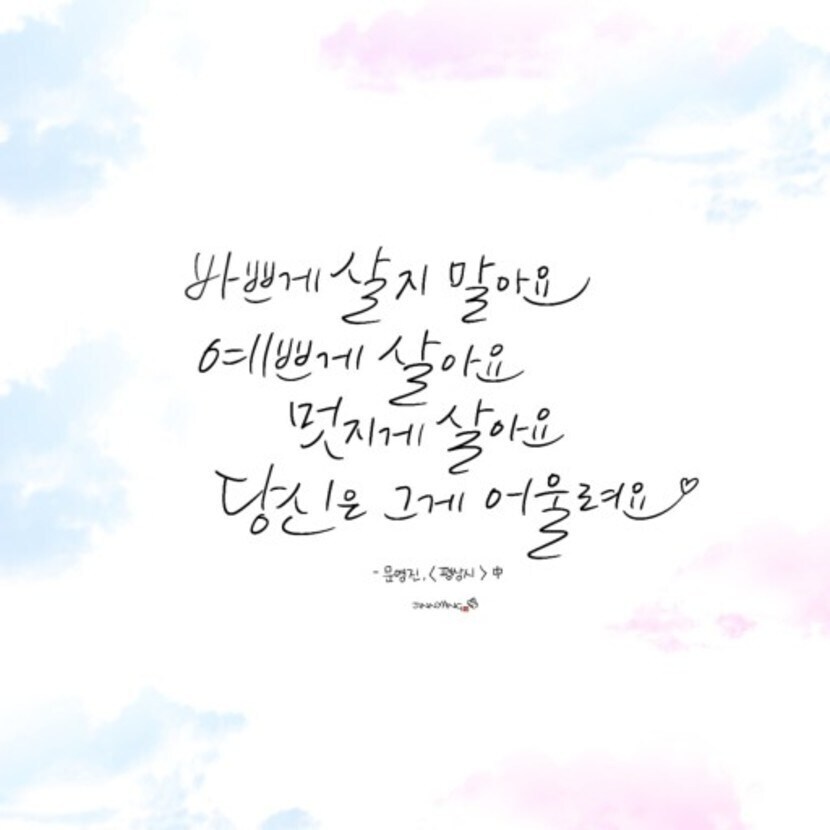 바쁘게 살지 말아요
예쁘게 살아요
멋지게 살아요
당신은 그게 어울려요♡
- 문영진, <평상시> 中